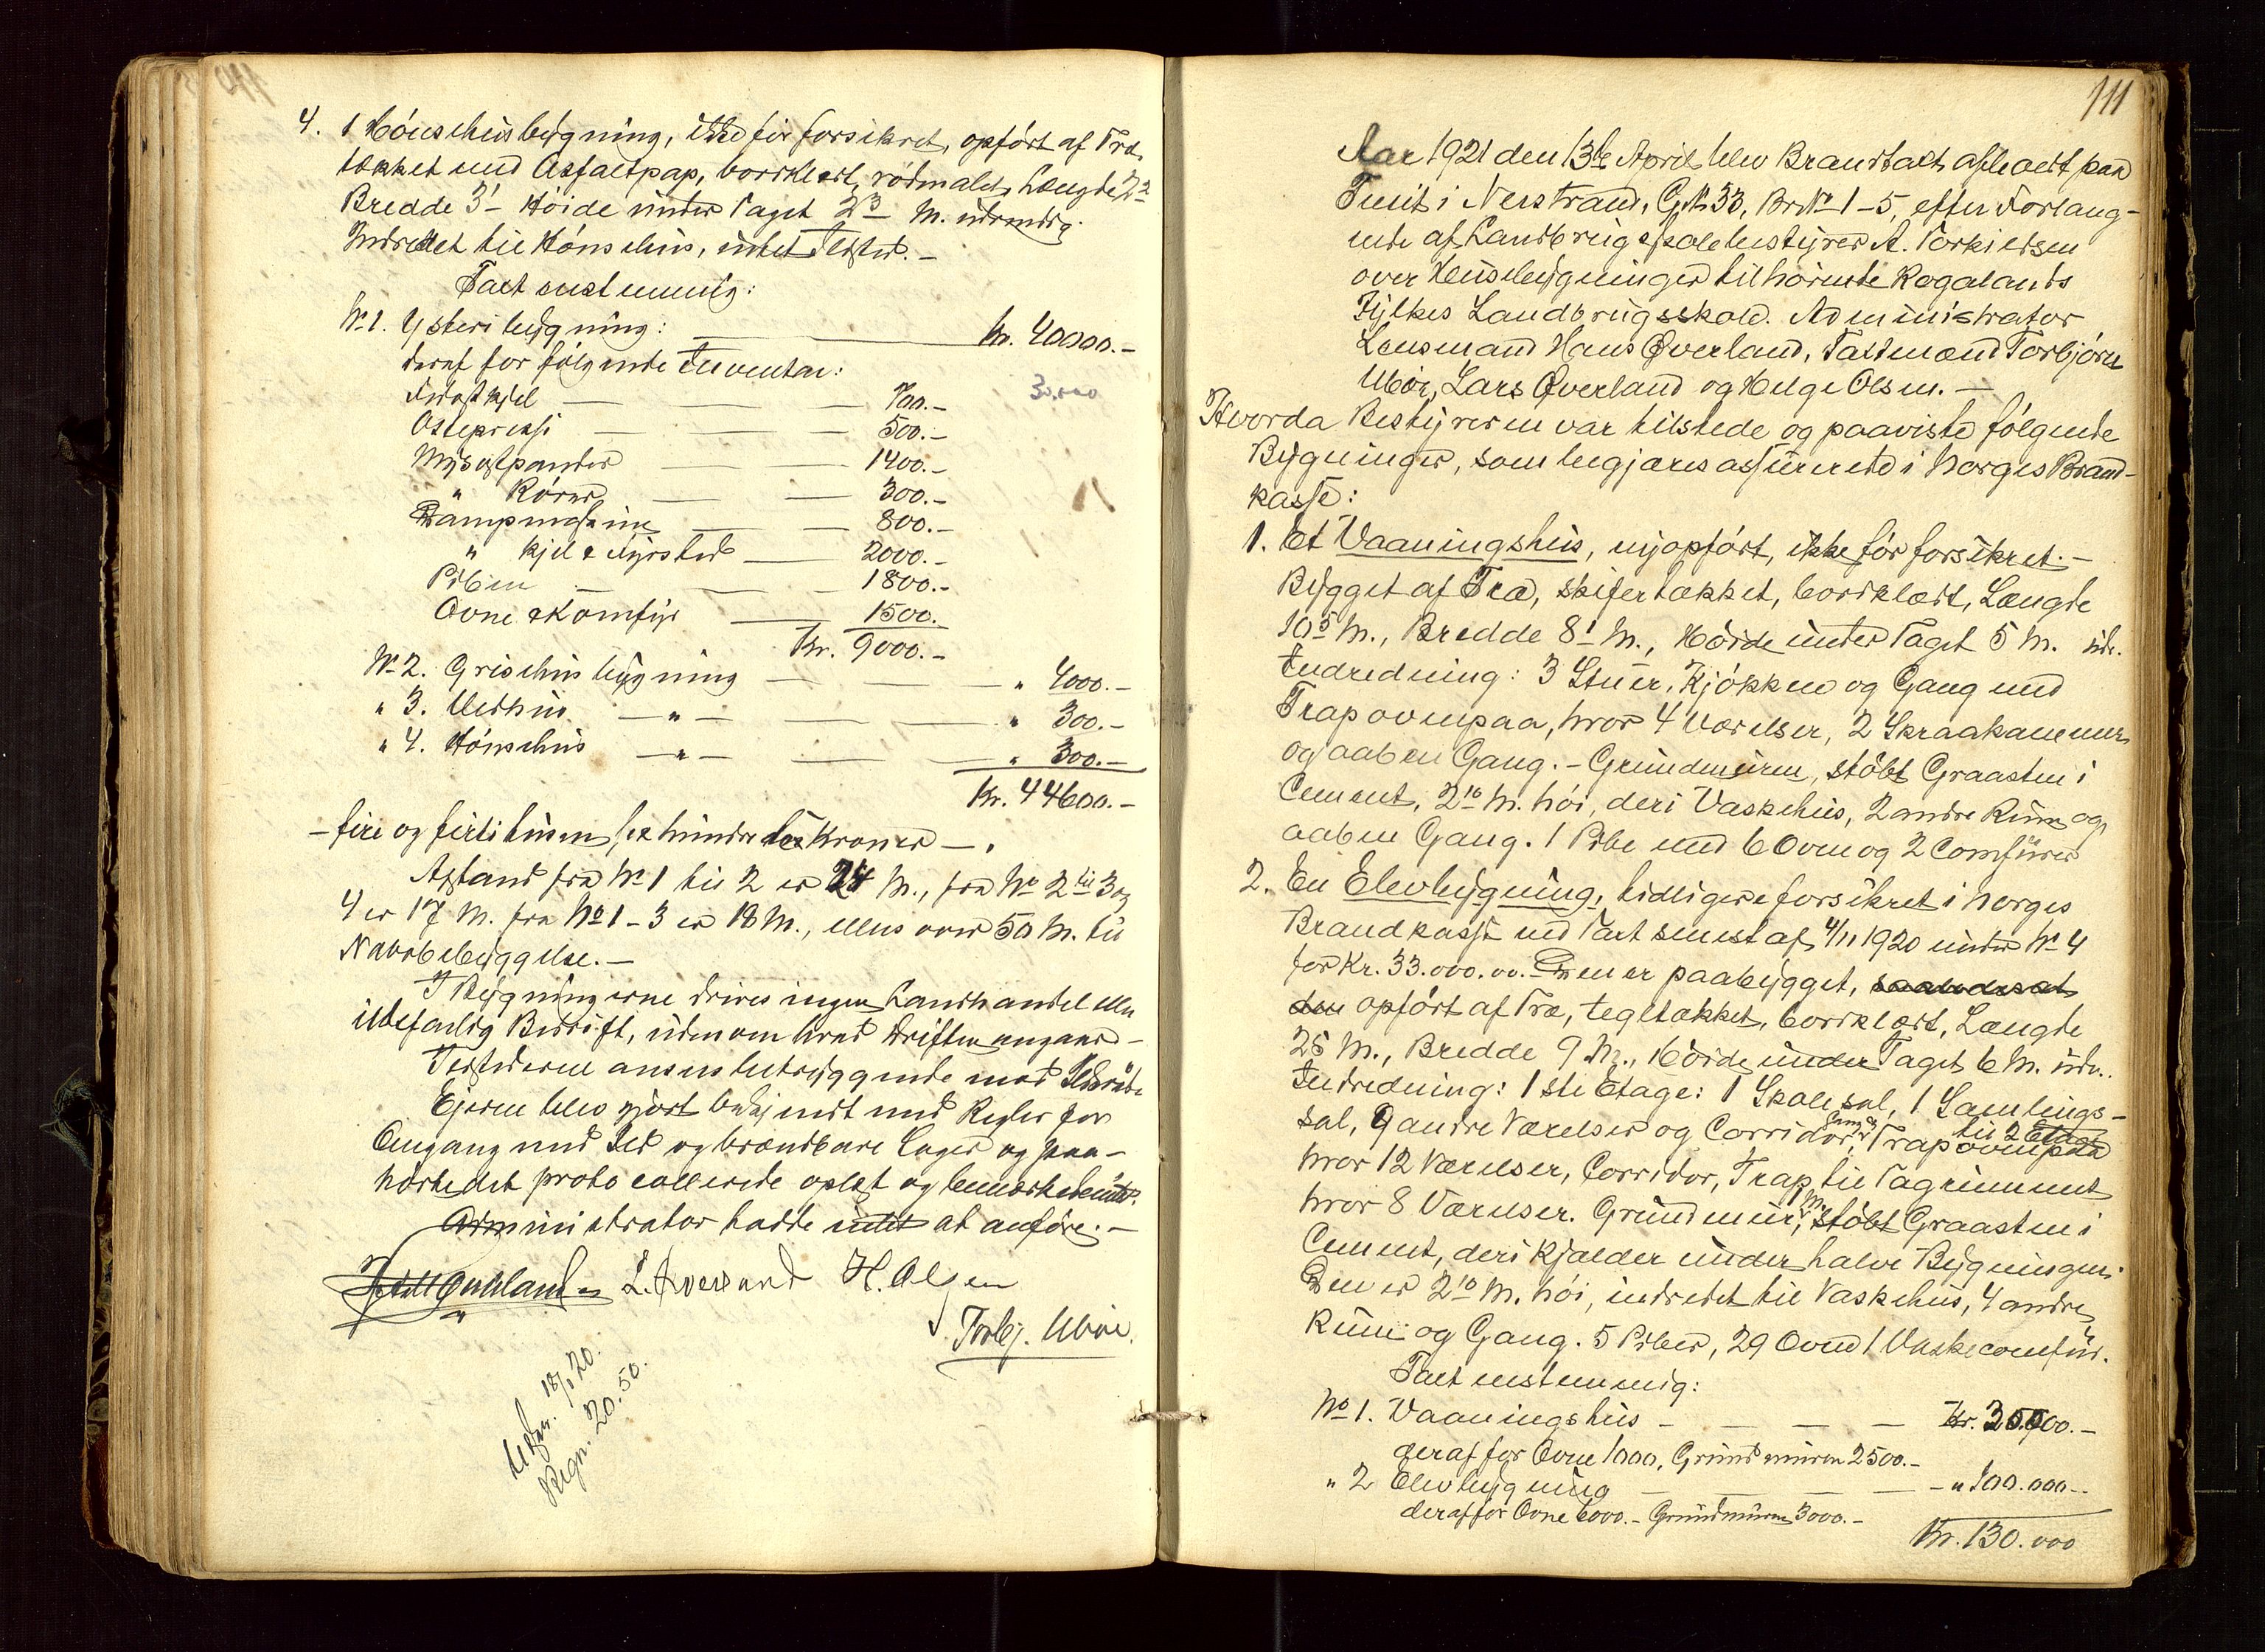 4. 1 Hönsehusbygning, ikke før forsikret, opført af Træ,
tækket med Asfaltpap, bordklædt, rødmalet, Længde 2²
Bredde 3¹ Høide under Taget 2³ M. udvendig.
Indredet til Hönsehus, intet Ildsted. –
Taxt enstemmig:
No 1. Ysteribygning: Kr. 40000.–
deraf for følgende Inventar:
30.000
Hvidostkjel — 700.–
Ostepresse — 500.–
Mysostpander — 1400.–
" Rörer — 300.–
Dampmaskine — 800.–
" kjel & Fyrsted — 2000.–
Piben — 1800.–
Ovne & Komfyr — 1500.
Kr. 9000.–
No 2. Grisehusbygning — " 4000.–
" 3. Vedhus — " — " 300.–
" 4. Hönsehus — " — " 300.–
Kr. 44600.–
– fire og firti tusen, sex hundrede Kroner –.
Afstand fra No 1 til 2 er 24 M., fra No 2 til 3 og
4 er 17 M. fra No 1–3 er 18 M., ellers over 50 M. til
Nabobebyggelse. –
I Bygningerne drives ingen Landhandel eller
ildsfarlig Bedrift, uden om hvad Driften angaar –
Ildstederne ansees betryggende mod Ildsvaade
Ejeren blev gjort bekjendt med Regler for
Omgang med Ild og brændbare Lager og paa–
hørte det protocollerede oplæst og bemærkede intet.
Administrator hadde intet at anføre. –
L. Øverland H. Olsen
Torbj. Ubøe.
Udfær. 18/1 20.
Regn. 20.50.
111
Aar 1921 den 13de April blev Brandtaxt afholdt paa
Tveit i Nerstrand, G.No 33, Br.No 1–5, efter Forlang–
ende af Landbrugsskolebestyrer A. Torkildsen
over Husebygninger tilhørende Rogalands
Fylkes Landbrugsskole. Administrator
Lensmand Hans Øverland, Taxtmænd Torbjørn
Ubøe, Lars Øverland og Helge Olsen. –
Hvorda Bestyreren var tilstede og paaviste følgende
Bygninger, som begjæres assurerede i Norges Brand–
kasse:
1. Et Vaaningshus, nyopført, ikke før forsikret. –
Bygget af Træ, skifertækket, bordklædt, Længde
10⁵ M., Bredde 8¹ M., Høide under Taget 5 M. udv.
Indredning: 3 Stuer, Kjøkken og Gang med
Trap ovenpaa, hvor 4 Værelser, 2 Skraakammer
og aaben Gang. – Grundmuren, støbt Graasten i
Cement, 2¹⁰ M. høi, deri Vaskehus, 2 andre Rum og
aaben Gang. 1 Pibe med 6 Ovne og 2 Comfürer
2. En Elevbygning, tidligere forsikret i Norges
Brandkasse ved Taxt senest af 4/11 1920 under No 4
for Kr. 33.000.00. – Den er paabygget,
den opført af Træ, tegltækket, bordklædt, Længde
25 M., Bredde 9 M., Høide under Taget 6 M. udv.
Indredning: 1ste Etage: 1 Skolesal, 1 Samlings–
sal, 9 andre Værelser og Corridor, Trap til 2 Etage ovenpaa
hvor 12 Værelser, Corridor, Trap til Tagrummet
hvor 8 Værelser. Grundmur, 1 M. støbt Graasten i
Cement, deri Kjælder under halve Bygningen.
Den er 2¹⁰ M. høi, indredet til Vaskehus, 4 andre
Rum og Gang. 5 Piber, 29 Ovne 1 Vaskecomfür.
Taxt enstemmig:
No 1. Vaaningshus – Kr. 30.000.–
deraf for Ovne 1000, Grundmuren 2500.–
" 2 Elevbygning — " 100.000.–
deraf for Ovne 6000.– Grundmuren 3000.–
Kr. 130.000